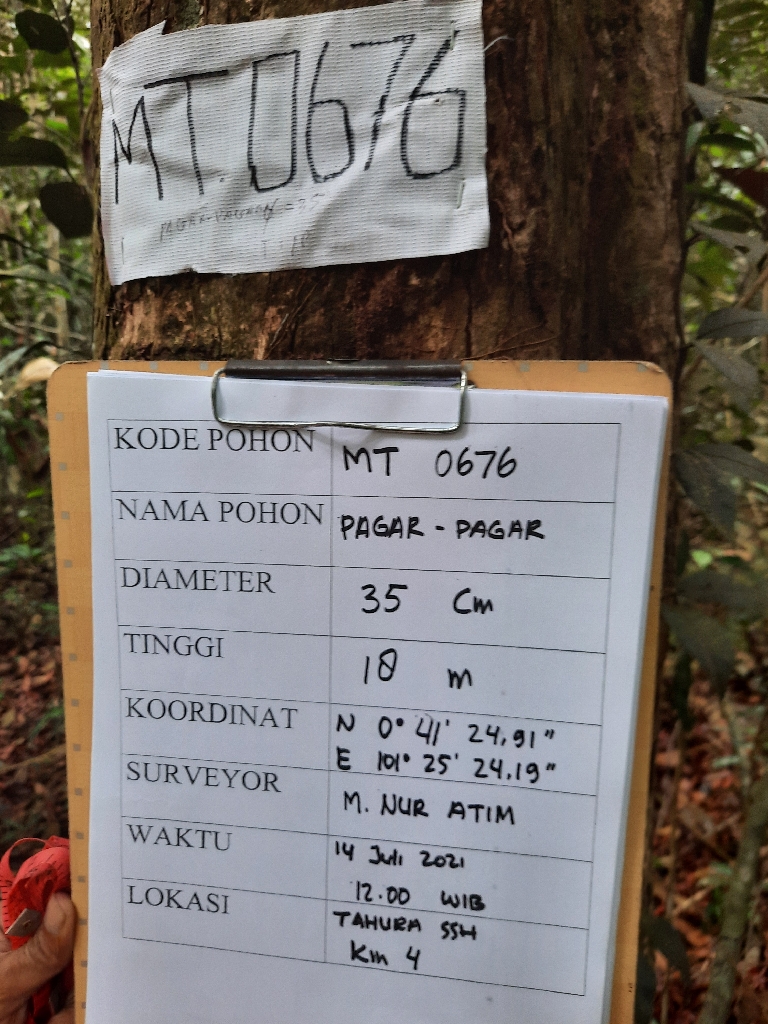 MT. 0676
PAGAR-PAGAR
KODE POHON MT 0676
NAMA POHON PAGAR - PAGAR
DIAMETER 35 Cm
TINGGI 18 m
KOORDINAT N 0° 41' 24,91"
E 101° 25' 24,19"
SURVEYOR M. NUR ATIM
WAKTU 14 Juli 2021
12.00 WIB
LOKASI TAHURA SSH
Km 4